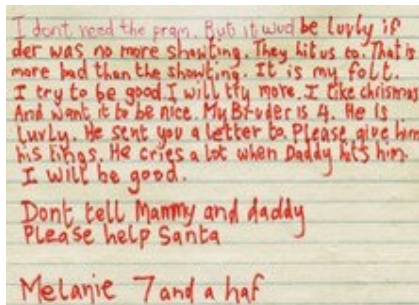 I dont need the pram. But it wud be luvly if
der was no more showting. They hit us to. That is
more bad than the showting. It is my folt.
I try to be good. I will try more. I like chrismas
And want it to be nice. My Bruder is 4. He is
luvly. He sent you a letter to. Please give him
his tings. He cries a lot when Daddy hits him.
I will be good.
Dont tell Mammy and daddy
Please help Santa
Melanie 7 and a haf